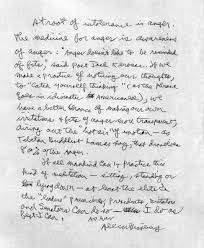 At root of intolerance is anger.
The medicine for anger is awareness
of anger: "Anger doesn't like to be reminded
of fits," said poet Jack Kerouac. If we
make a practice of noticing our thoughts,
to "catch yourself thinking" (as the phrase
goes in idiomatic Americanese), we
have a better chance of making our own
irritations & fits of anger more transparent,
airing out the hot air of emotion — as
Tibetan Buddhist lamas say, that dissolves
80% of the anger.
If all mankind can practice this
kind of meditation — sitting, standing or
lying down — at least the elite
"leaders"
and Senators can do so — I do as
best I can. As ever
Allen Ginsberg